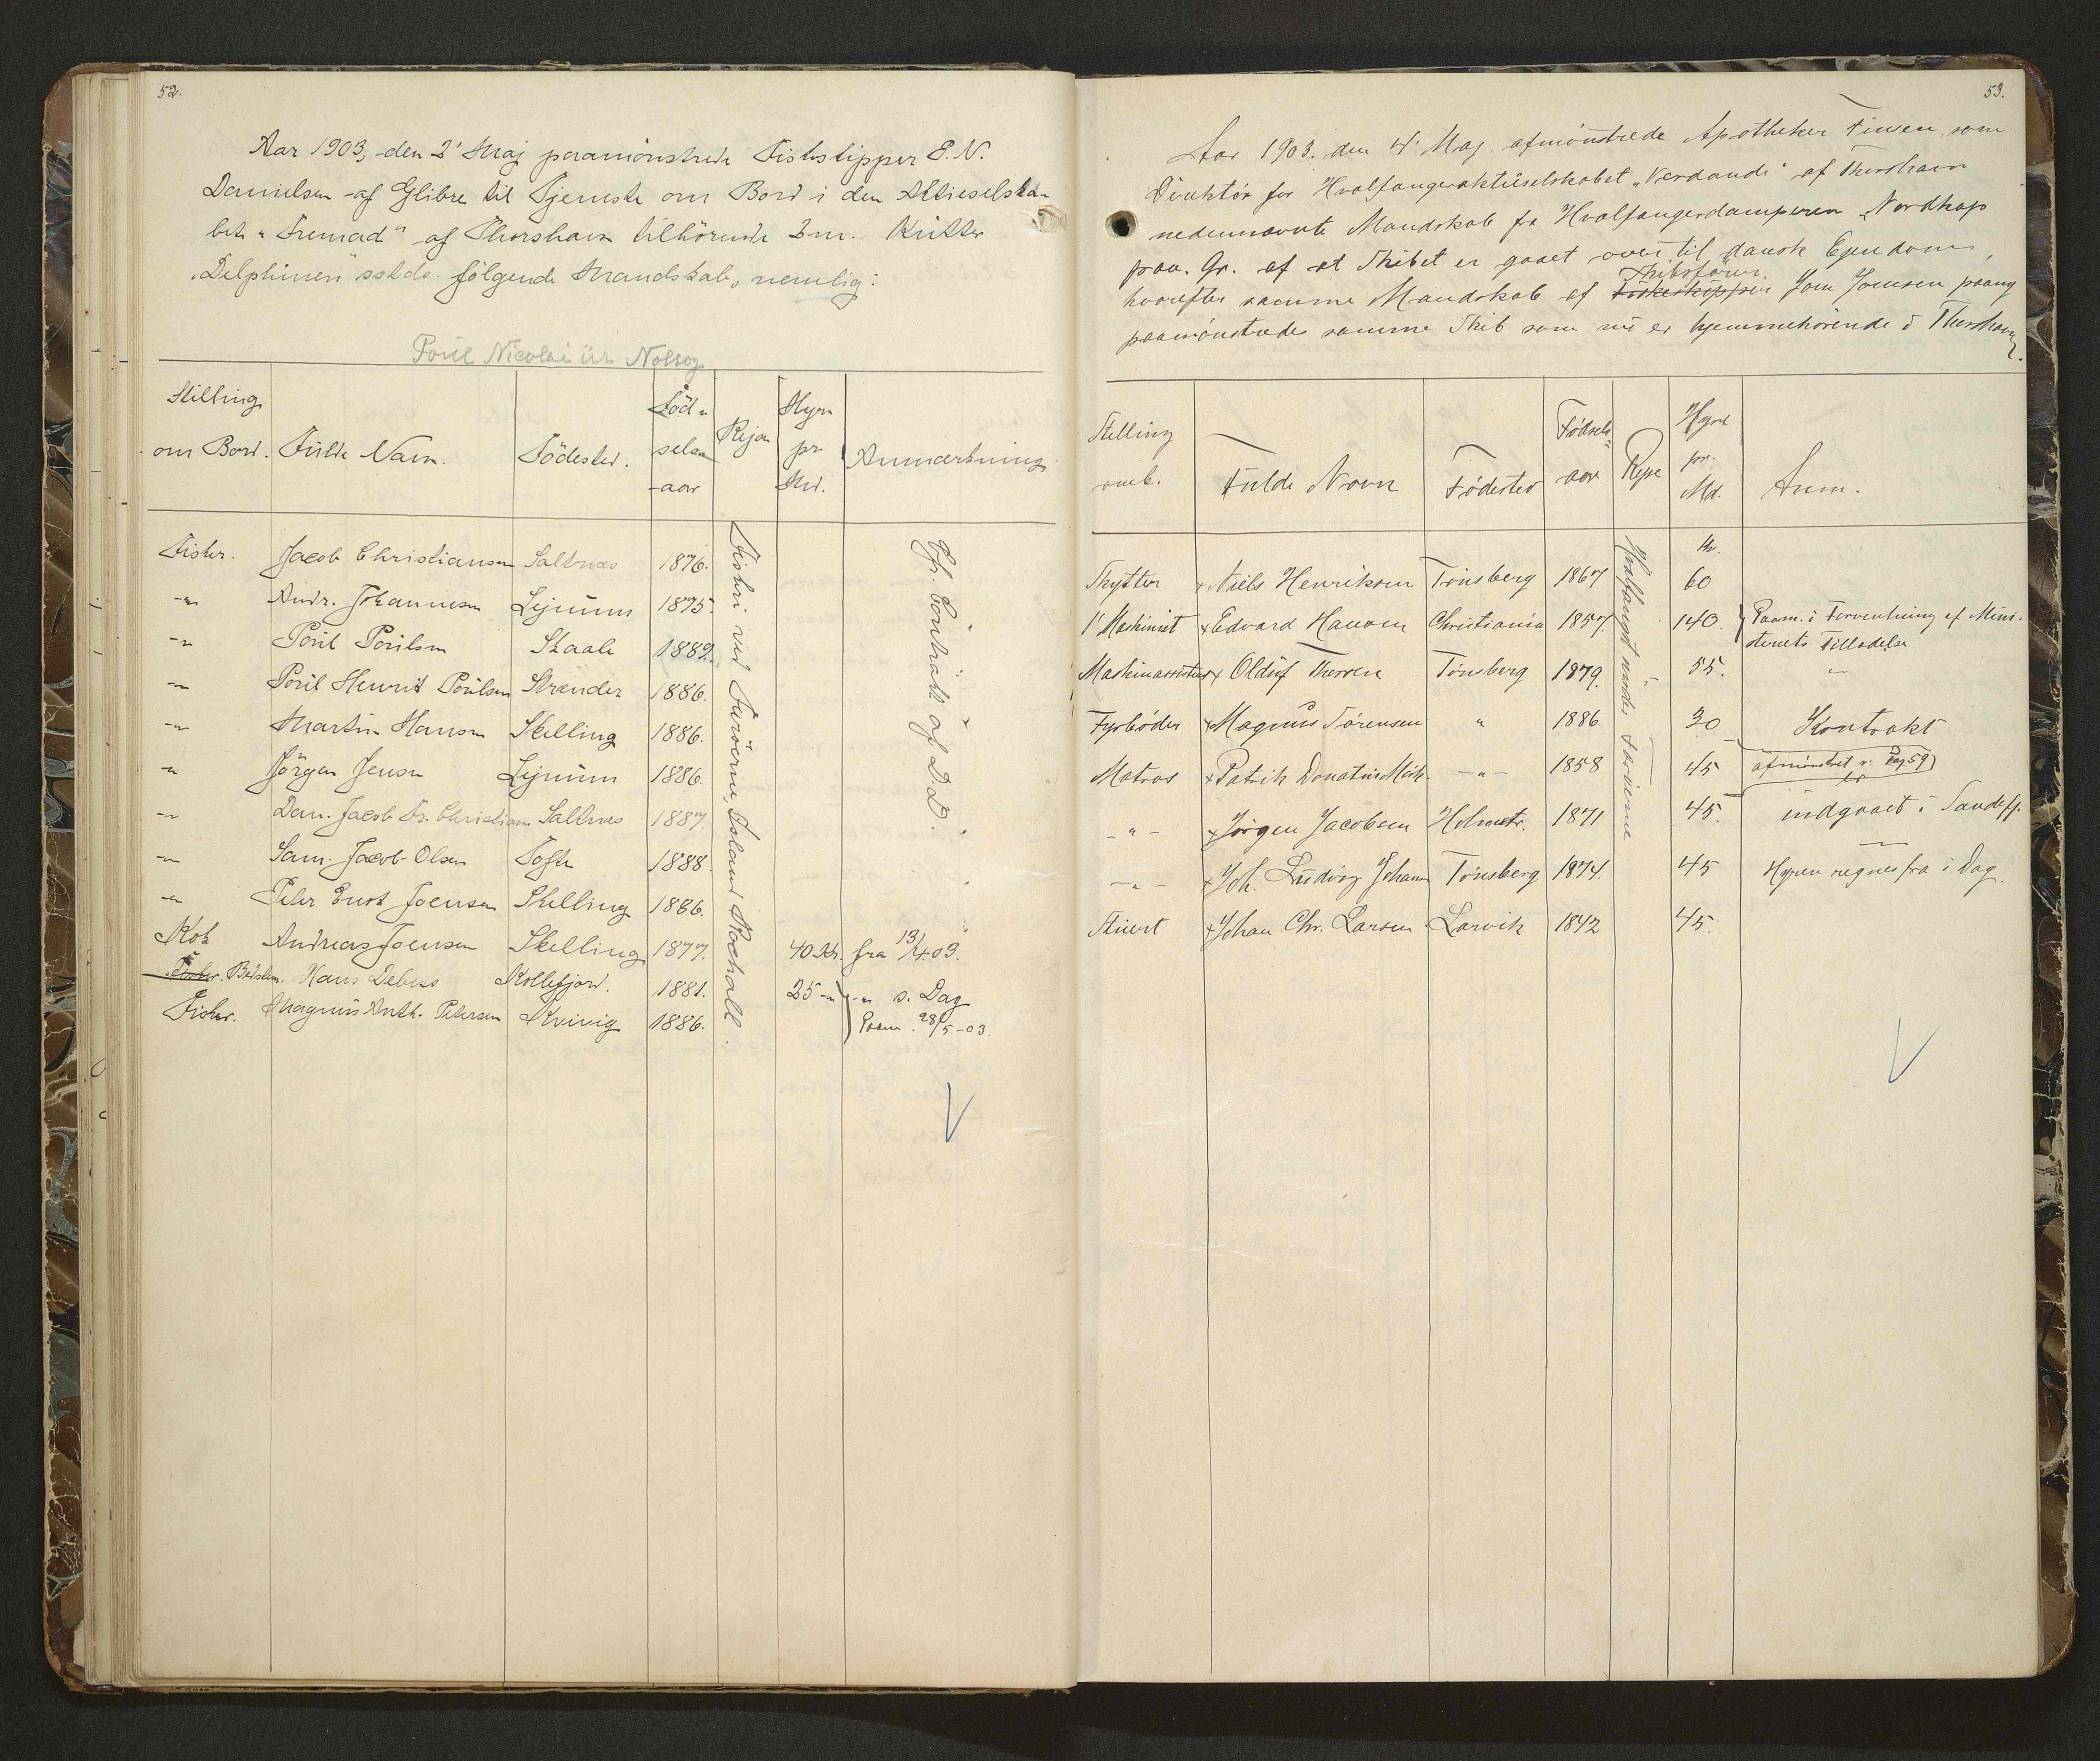 52.
Aar 1903, den 2' Maj paamönstrede Fiskeskipper P. N.
Danielsen af Glibre til Tjeneste om Bord i den Aktieselska-
bet "Fremad" af Thorshavn tilhörende 3 m. Kutter
"Delphinen" sstds. fölgende Mandskab, nemlig:
Poul Nicolai ür Nolsoy
Stilling om Bord. Fulde Navn. Födested. Föd-selsaar Rejse Hyre pr Md. Anmærkning
Fiskeri ved Færöerne, Island Rockall.
Cfr. Contrakt af D.D.
Fisker. Jacob Christiansen Saltnæs 1876.
-"- Andr. Johannesen Lejnum 1875.
-"- Poul Poulsen Skaale 1882.
-"- Poul Henrik Poulsen Strænder 1886.
-"- Martin Hansen Skelling 1886.
-"- Jörgen Jensen Lejnum 1886.
-"- Dan. Jacob Fr. Christians Saltnæs 1887.
-"- Sam. Jacob Olsen Tofte 1888.
-"- Peter Enok Joensen Skelling 1886.
Kok Andreas Joensen Skelling 1877. 40 Kr. fra 13/4 03.
Fisker. Bedstem. Hans Debess Kollefjord. 1881. 25 -"- -"- s. Dag
Fisker. Magnus Anth. Petersen Kvivig 1886. Paam. 28/5-03.
53.
Aar 1903. den 4' Maj afmönstrede Apotheker Finsen, som
Direktör for Hvalfangeraktieselskabet "Verdandi" af Thorshavn
nedennævnte Mandskab fra Hvalfangerdamperen "Nordkap
paa. Gr. af at Skibet er gaaet over til dansk Ejendom,
Skibsförer.
hvorefter samme Mandskab af Fiskeskipper Joen Joensen paany
paamönstredes samme Skib som nu er hjemmehörende i Thorshavn.
Stilling omb. Fulde Navn Födested Födsels-aar Rejse Hyre pr. Md. Anm.
Hvalfangst under Færöerne
Kr.
Skytter x Niels Henriksen Tönsberg 1867 60
1' Maskinist x Edvard Hansen Christiania 1857. 140. Paam. i Forventning af Mini-
steriets Tilladelse
Maskinassistent x Oluf Thersen Tönsberg 1879. 55. -"-
Fyrböder x Magnus Sörensen " 1886 30 Kontrakt
Matros x Patrik Donatus Mich. -"- 1858 45 afmönstret v. Pag 59
-"- x Jörgen Jacobsen Holmestr. 1871 45. indgaaet i Sandefj.
-"- x Joh. Ludvig Johans Tönsberg 1874. 45 Hyren regnes fra i Dag.
Stuert x Johan Chr. Larsen Larvik 1842 45.